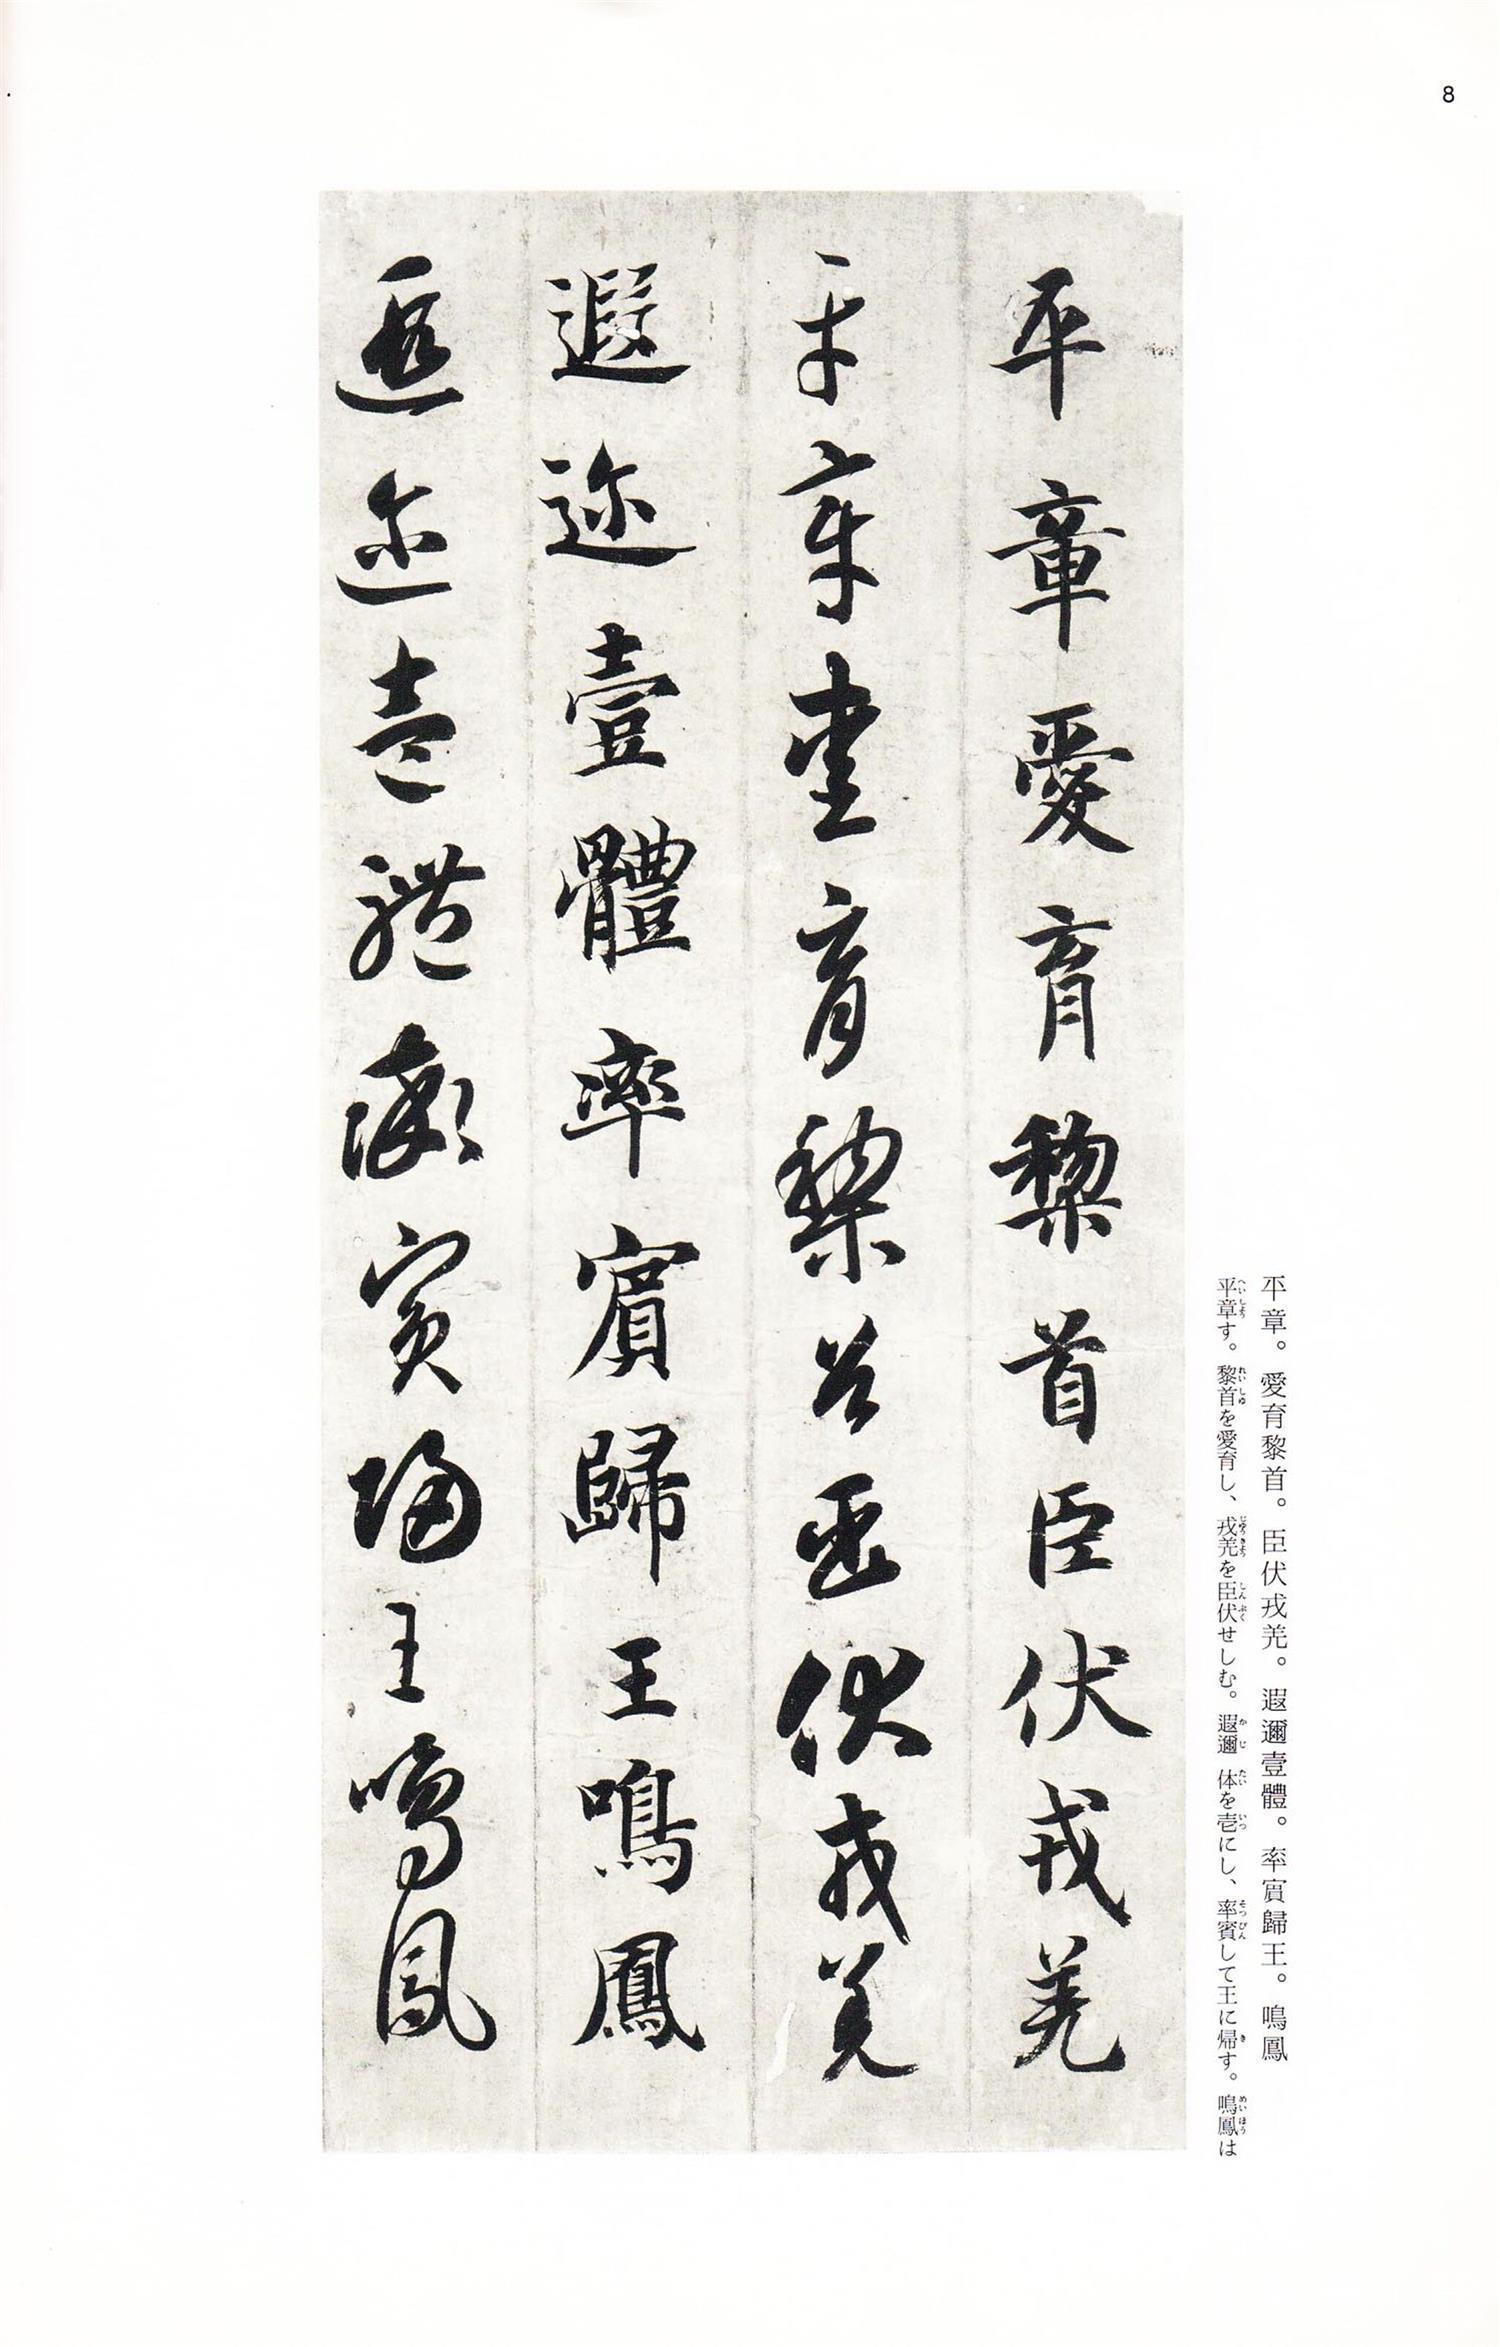 8
平章。愛育黎首。臣伏戎羌。遐邇壹體。率賓歸王。鳴鳳
平章す。黎首を愛育し、戎羌を臣伏せしむ。遐邇 体を壱にし、率賓して王に帰す。鳴鳳は
平章愛育黎首臣伏戎羌
平章愛育黎首臣伏戎羌
遐迩壹體率賓歸王鳴鳳
遐迩壹體率賓歸王鳴鳳